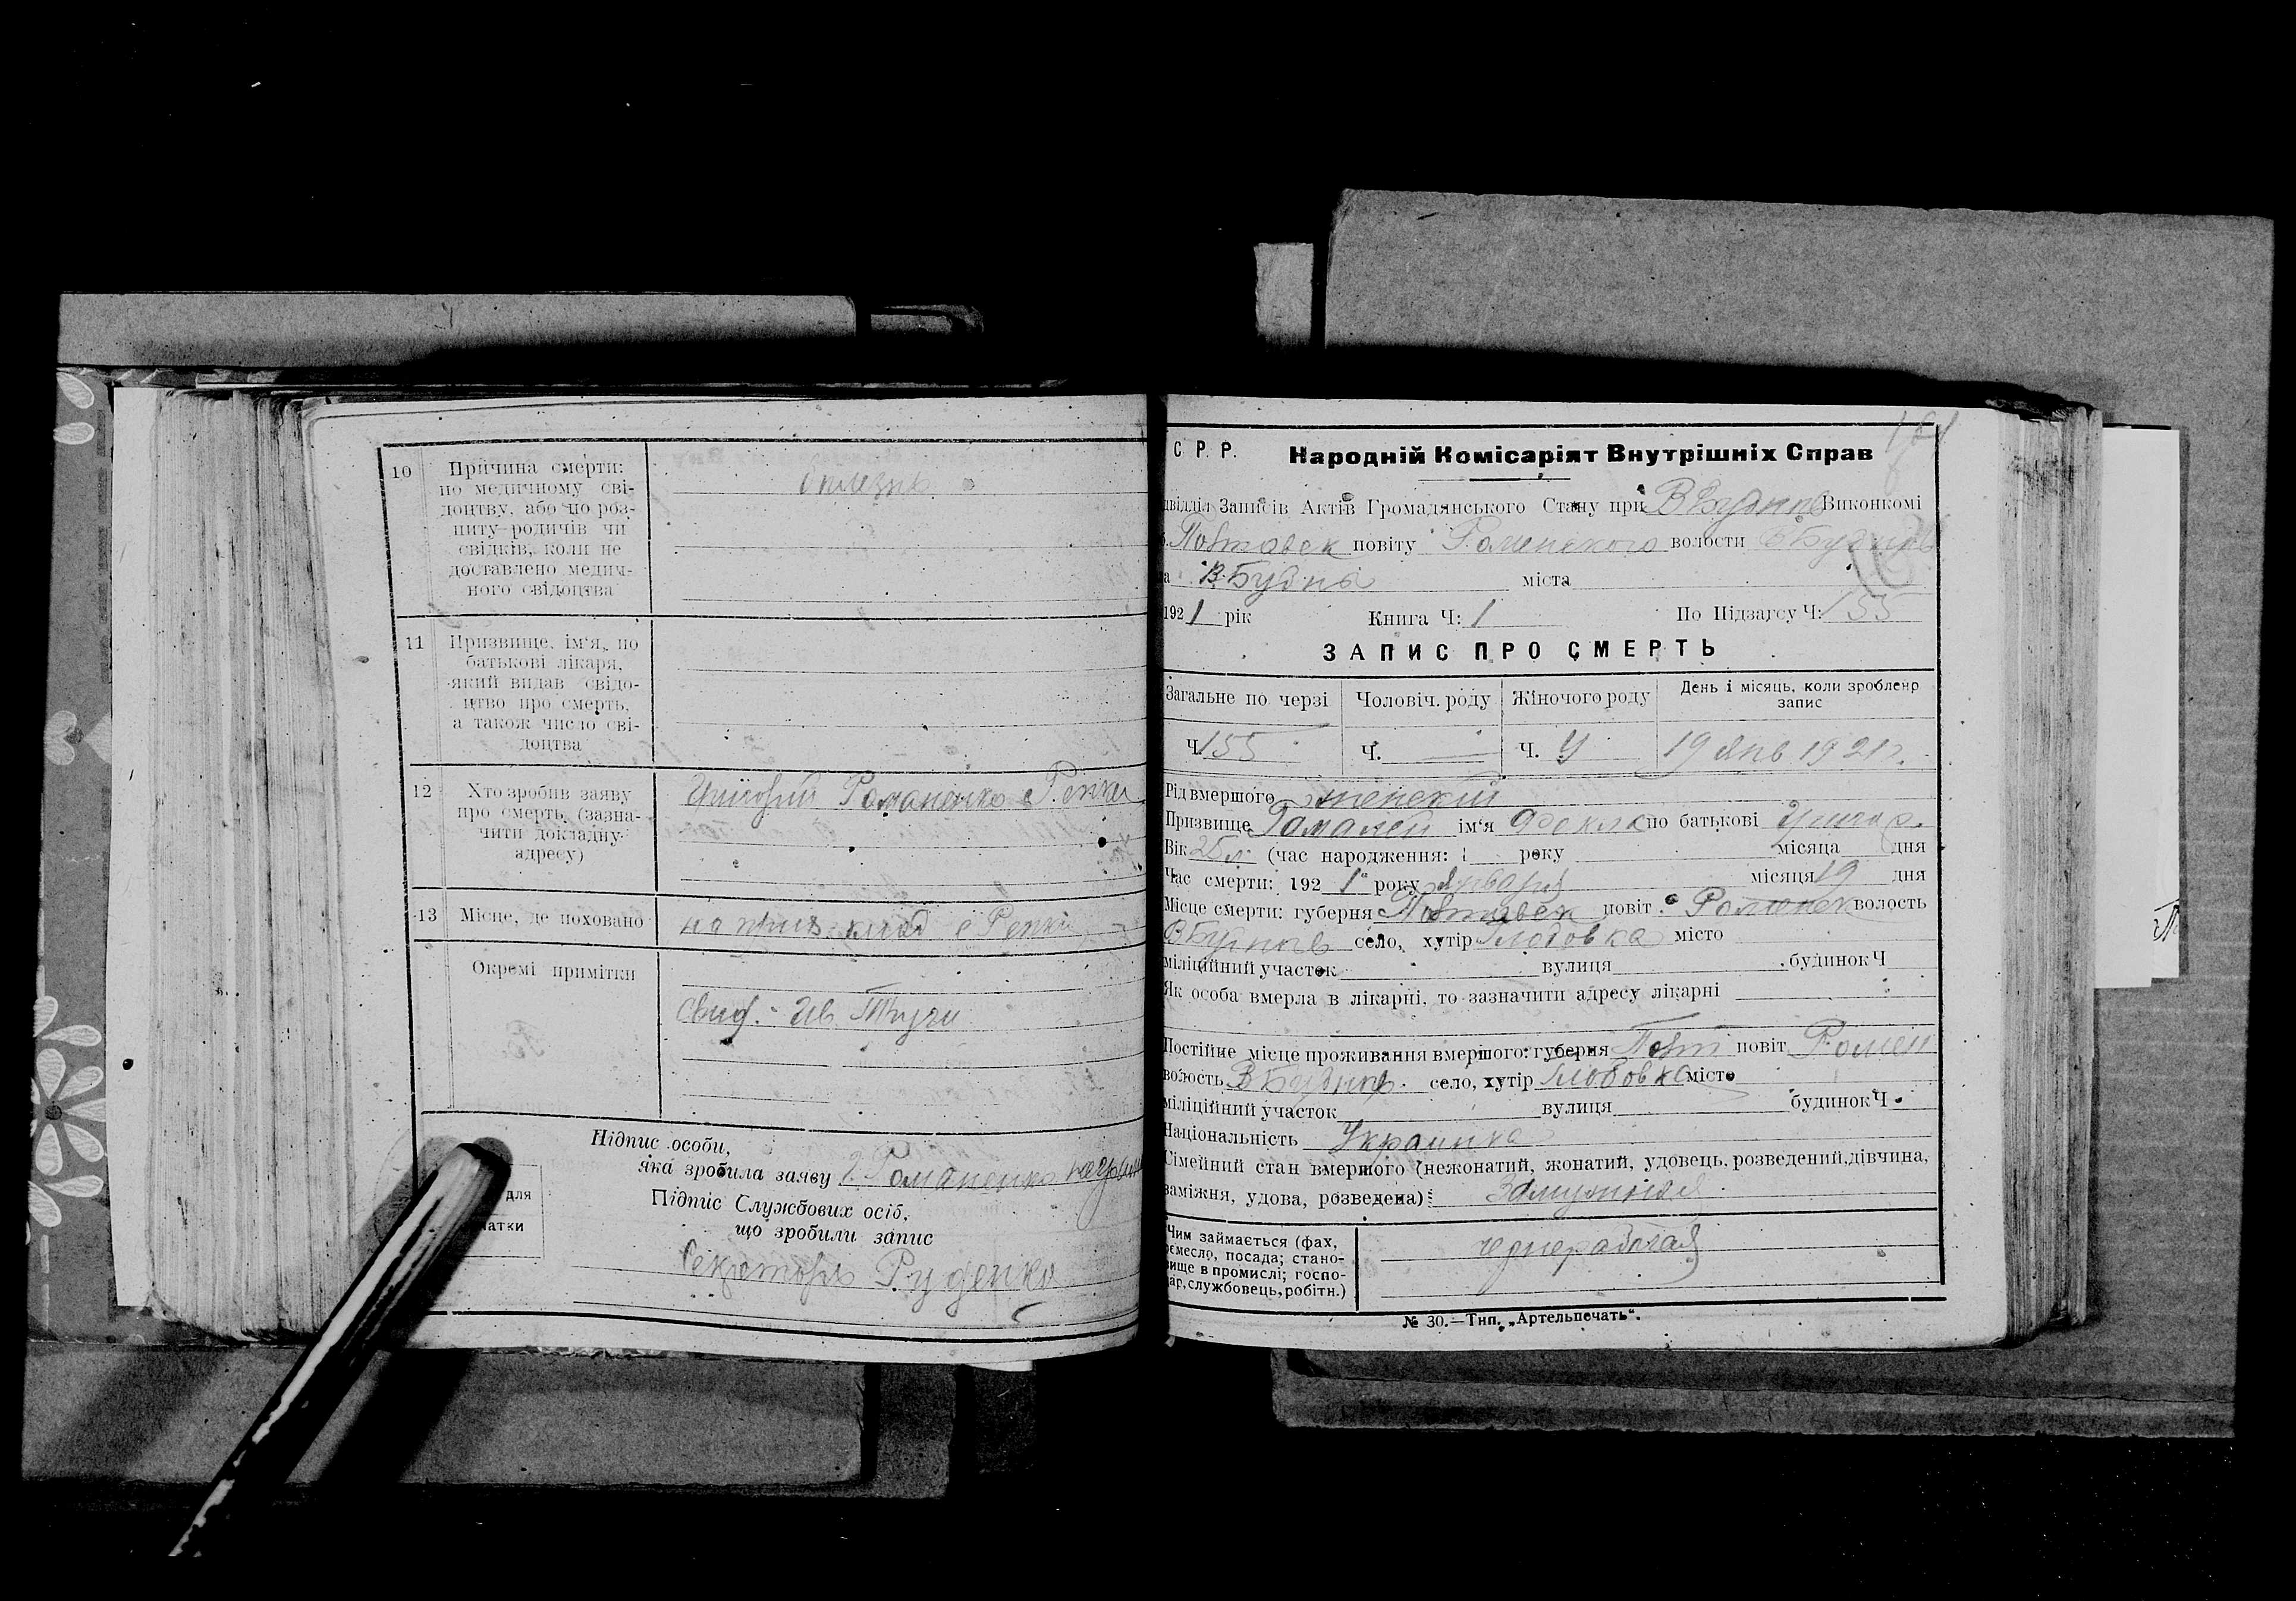 10 Причина смерти:
по медичному сві-
доцтву, або по роз-
питу родичів чи
свідків, коли не
доставлено медич-
ного свідоцтва
11 Призвище, ім'я, по
батькові лікаря,
який видав свідо-
цтво про смерть,
а також число сві-
доцтва
12 Хто зробив заяву
про смерть (зазна-
чити докладну
адресу)
Романенко с Репки
13 Місце, де поховано
с Репки
Окремі примітки
Свид. - Ив
Підпис особи,
яка зробила заяву Романенко
Підпис Службових осіб,
що зробили запис
для
атки
Секретарь Руденко
С. Р. Р. Народній Комісаріят Внутрішніх Справ
двідділ Записів Актів Громадянського Стану при ВБудк Виконкомі
Повтавск повіту Роменского волости
а В Будка міста
1921 рік Книга Ч: 1 По Підзагсу Ч: 155
ЗАПИС ПРО СМЕРТЬ
Загальне по черзі Чоловіч. роду Жіночого роду День і місяць, коли зроблено
запис
Ч. 155 Ч. — Ч. 19 Янв 1921 г.
Рід вмершого женский
Призвище Гамалей ім'я Фекла по батькові
Вік 25 л (час народження: 1 року місяця дня
Час смерти: 1921 року Января місяця 19 дня
Місце смерти: губерня Повтавск повіт Роменск волость
село, хутір місто
міліційний участок вулиця будинок Ч
Як особа вмерла в лікарні, то зазначити адресу лікарні
Постійне місце проживання вмершого: губерня Повт повіт Ромен
волость село, хутір місто
міліційний участок вулиця будинок Ч
Національність Украинка
Сімейний стан вмершого (нежонатий, жонатий, удовець, розведений, дівчина,
заміжня, удова, розведена): Замужняя
Чим займається (фах,
ремесло, посада; стано-
вище в промислі; госпо-
дар, службовець, робітн.)
чернерабочая
№ 30.—Тип. „Артельпечать“.